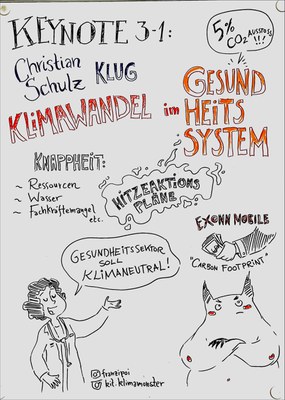 KEYNOTE 3-1:
5%
CO2 AUSSTOSS
!!!
Christian
Schulz
KLUG
KLIMAWANDEL im
GESUND
HEITS
SYSTEM
KNAPPHEIT:
~ Ressourcen
~ Wasser
~ Fachkräftemangel
etc.
HITZEAKTIONS
PLÄNE
EXXON MOBILE
"CARBON FOOTPRINT"
GESUNDHEITSSEKTOR
SOLL
KLIMANEUTRAL!
@franzipoi
kit.klimamonster